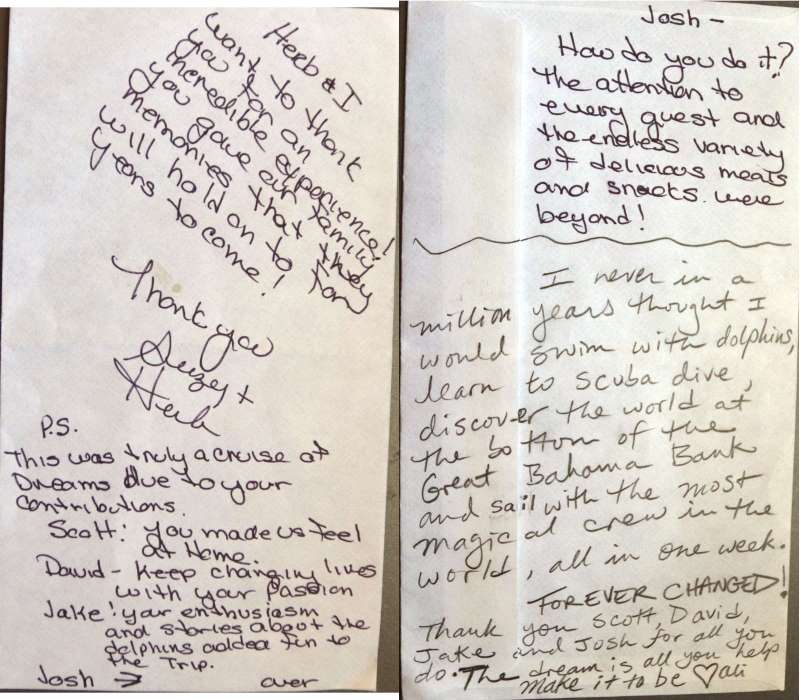 Heeb & I
want to thank
you for an
incredible experience!
you gave our family
memories that they
will hold on to for
years to come!
Thank you
Suzey +
Heeb
P.S.
This was truly a cruise of
Dreams due to your
contributions.
Scott: you made us feel
at Home.
David - Keep changing lives
with your Passion
Jake! your enthusiasm
and stories about the
dolphins added fun to
the Trip.
Josh →
over
Josh -
How do you do it?
The attention to
every guest and
the endless variety
of delicious meals
and snacks were
beyond!
I never in a
million years thought I
would swim with dolphins,
learn to scuba dive,
discover the world at
the bottom of the
Great Bahama Bank
and sail with the most
magical crew in the
world, all in one week.
FOREVER CHANGED!
Thank you Scott, David,
Jake and Josh for all you
do. The dream is all you help
make it to be ♡ali